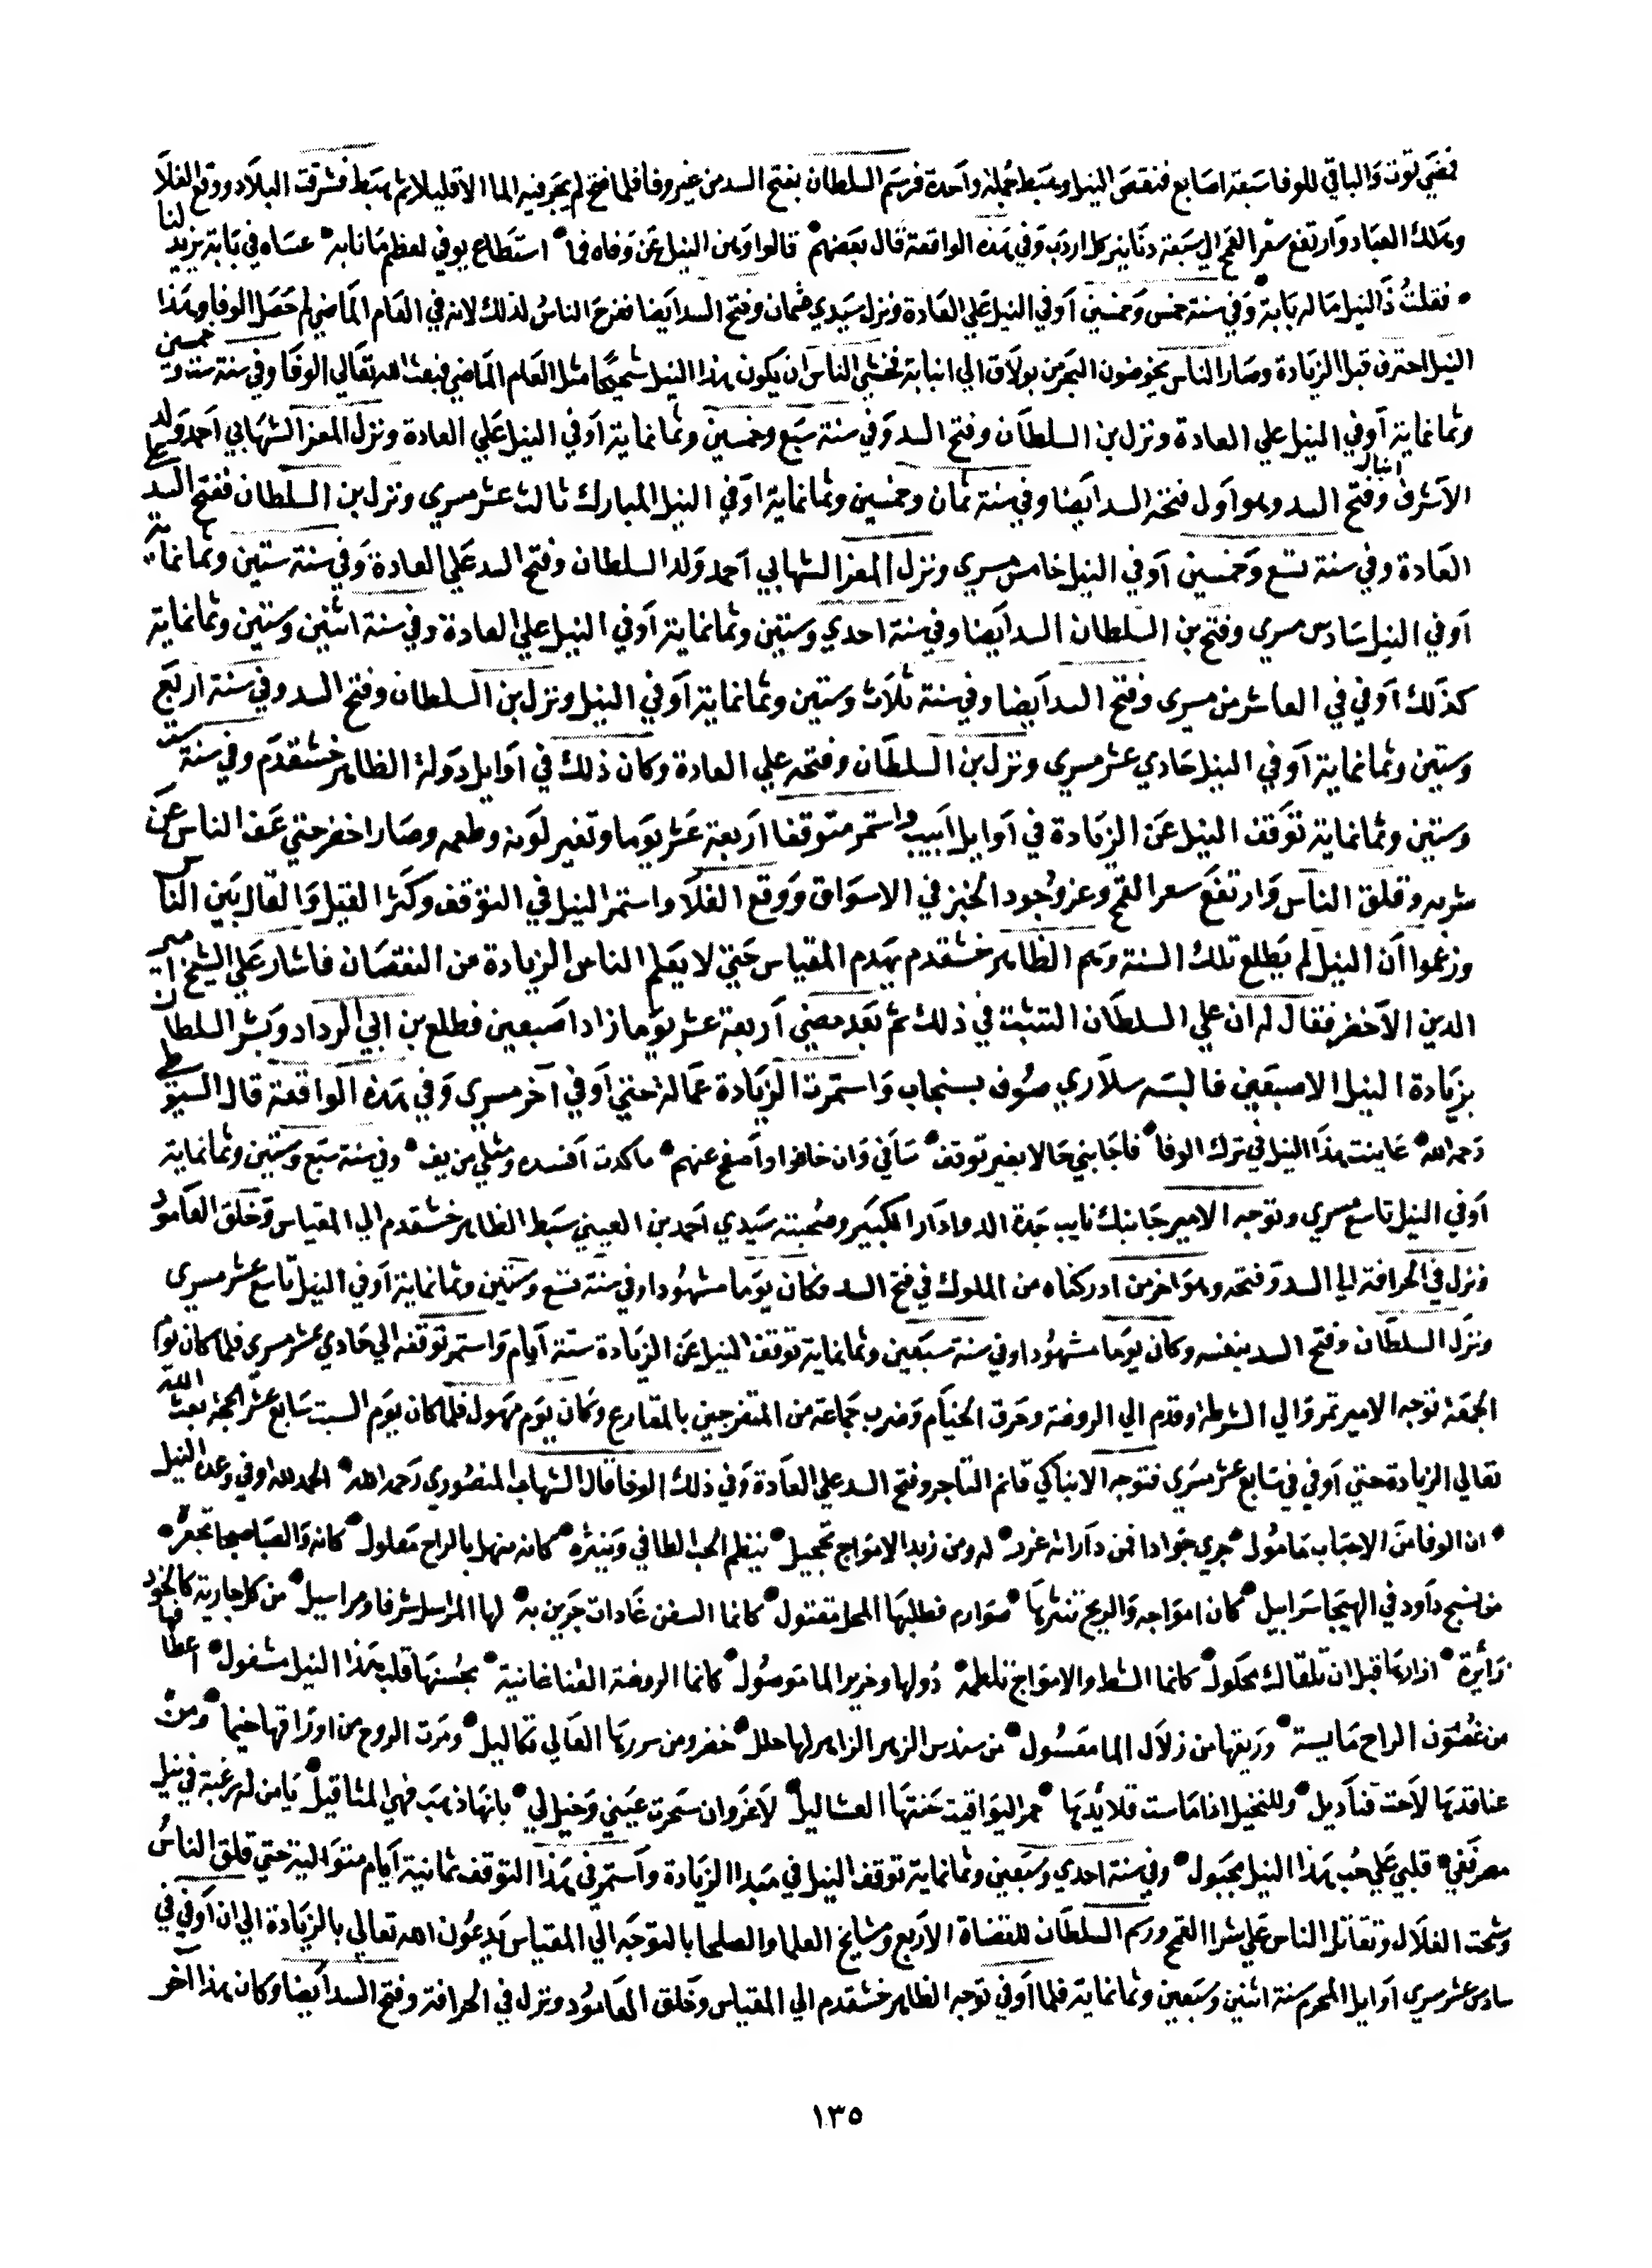 فمضي توت والباقي للوفا سبعة اصابع فنقص النيل وهبط جملة واحدة فرسم السلطان بفتح السد من غير وفا فلما فتح لم يجر فيه الما الا قليلا ثم هبط فشرقت البلاد ووقع الغلا
وهلك العباد وارتفع سعر القمح الي سبعة دنانير كل اردب وفي هذه الواقعة قال بعضهم • قالوا وهن النيل عن وفاه فما • استطاع يوفي لعظم ما نابه • عساه في بابة يزيد لنا
• فقلت ذا النيل ما له بابة • وفي سنة خمس وخمسين اوفي النيل علي العادة ونزل سيدي عثمان وفتح السد ايضا ففرح الناس لذلك لانه في العام الماضي لم حصل الوفا وهذا
النيل احترق قبل الزيادة وصار الناس يخوضون البحر من بولاق الي انبابة فخشي الناس ان يكون هذا النيل شحيحا مثل العام الماضي فبعث الله تعالي الوفا وفي سنة ست وخمسين
وثمانماية اوفي النيل علي العادة ونزل بن السلطان وفتح السد وفي سنة سبع وخمسين وثمانماية اوفي النيل علي العادة ونزل المعز الشهابي احمد ولد
الاشرف اينال وفتح السد وهو اول فتحه السد ايضا وفي سنة ثمان وخمسين وثمانماية اوفي النيل المبارك ثالث عشر مسري ونزل بن السلطان ففتح السد علي
العادة وفي سنة تسع وخمسين اوفي النيل خامس مسري ونزل المعز الشهابي احمد ولد السلطان وفتح السد علي العادة وفي سنة ستين وثمانماية
اوفي النيل سادس مسري وفتح بن السلطان السد ايضا وفي سنة احدي وستين وثمانماية اوفي النيل علي العادة وفي سنة اثنين وستين وثمانماية
كذلك اوفي في العاشر من مسري وفتح السد ايضا وفي سنة ثلاث وستين وثمانماية اوفي النيل ونزل بن السلطان وفتح السد وفي سنة اربع
وستين وثمانماية اوفي النيل حادي عشر مسري ونزل بن السلطان وفتحه علي العادة وكان ذلك في اوايل دولة الظاهر خشقدم وفي سنة ست
وستين وثمانماية توقف النيل عن الزيادة في اوايل ابيب واستمر متوقفا اربعة عشر يوما وتغير لونه وطعمه وصار اخضر حتي عف الناس عن
شربه وقلق الناس وارتفع سعر القمح وعز وجود الخبز في الاسواق ووقع الغلا واستمر النيل في التوقف وكثر القيل والقال بين الناس
وزعموا ان النيل لم يطلع تلك السنة وهم الظاهر خشقدم بهدم المقياس حتي لا يعلم الناس الزيادة من النقصان فاشار علي الشيخ امين
الدين الاخضر فقال له ان علي السلطان التثبت في ذلك ثم بعد مضي اربعة عشر يوما زاد اصبعين فطلع بن ابي الرداد وبشر السلطان
بزيادة النيل الاصبعين فالبسه سلاري صوف بسنجاب واستمرت الزيادة عمالة حتي اوفي آخر مسري وفي هذه الواقعة قال السيوطي
رحمه الله • عاينت هذا النيل في ترك الوفا • فاجابني حالا بغير توقف • شاني وان خانوا واصفح عنهم • ما كدت افسده ومثلي من يف • وفي سنة سبع وستين وثمانماية
اوفي النيل تاسع مسري وتوجه الامير جانبك نايب جدة الدوادار الكبير وصحبته سيدي احمد بن العيني سبط الظاهر خشقدم الي المقياس وخلق العامود
ونزل في الحراقة الي السد وفتحه وهو اخر من ادركناه من الملوك في فتح السد وكان يوما مشهودا وفي سنة تسع وستين وثمانماية اوفي النيل تاسع عشر مسري
ونزل السلطان وفتح السد بنفسه وكان يوما مشهودا وفي سنة سبعين وثمانماية توقف النيل عن الزيادة ستة ايام واستمر توقفه الي حادي عشر مسري فلما كان يوم
الجمعة توجه الامير تمر والي الشرطة وقدم الي الروضة وحرق الخيام وضرب جماعة من المتفرجين بالمقارع وكان يوم مهول فلما كان يوم السبت سابع عشر الحجة بعث الله
تعالي الزيادة حتي اوفي في سابع عشر مسري فتوجه الاتابكي قانم التاجر وفتح السد علي العادة وفي ذلك الوفا قال الشهاب المنصوري رحمه الله • الحمد لله اوفي وعده النيل
• ان الوفا من الاحباب مامول • جري جوادا فمن داراته غرر • له ومن زبد الامواج تحجيل • ينظم الحب الطافي وينثره • كانه منهل بالراح معلول • كانه والصبا صبحا تجعده •
من نسج داود في الهيجا سرابيل • كان امواجه والريح تنشرها • صوارم فطلبها المحل مقتول • كانما السفن غادات جرين به • لها المراسل شرفا ومراسيل • من كل جارية كالخود فيها
زائرة • ازارها قبل ان تلقاك محلول • كانما الشط والامواج تلطمه • دولها وخرير الما موصول • كانما الروضة الغنا غانية • بحسنها قلب هذا النيل مشغول • اعطا
من غصون الراح مايسة • وريقها من زلال الما معسول • من سندس الزهر الزاهر لها حلل • خضر ومن سررها العالي تماليل • ومدت الروح من اوراقها خيما • ومن
عناقدها لاحت قناديل • وللنخيل اذا ماست قلائدها • حمر اليواقيت ضمنتها العثاكيل • لا غرو ان سحرت عيني وخيل لي • بانها ذهب فهي المثاقيل • يا من له رغبة في نيل
معرفتي • قلبي علي حب هذا النيل مجبول • وفي سنة احدي وسبعين وثمانماية توقف النيل في مبدا الزيادة واستمر في هذا التوقف ثمانية ايام متوالية حتي قلق الناس
وشحت الغلال وتقاتل الناس علي شرا القمح ورسم السلطان للقضاة الاربع ومشايخ العلما والصلحا بالتوجه الي المقياس يدعون الله تعالي بالزيادة الي ان اوفي في
سادس عشر مسري اوايل المحرم سنة اثنين وسبعين وثمانماية فلما اوفي توجه الظاهر خشقدم الي المقياس وخلق العامود ونزل في الحراقة وفتح السد ايضا وكان هذا آخر
١٣٥